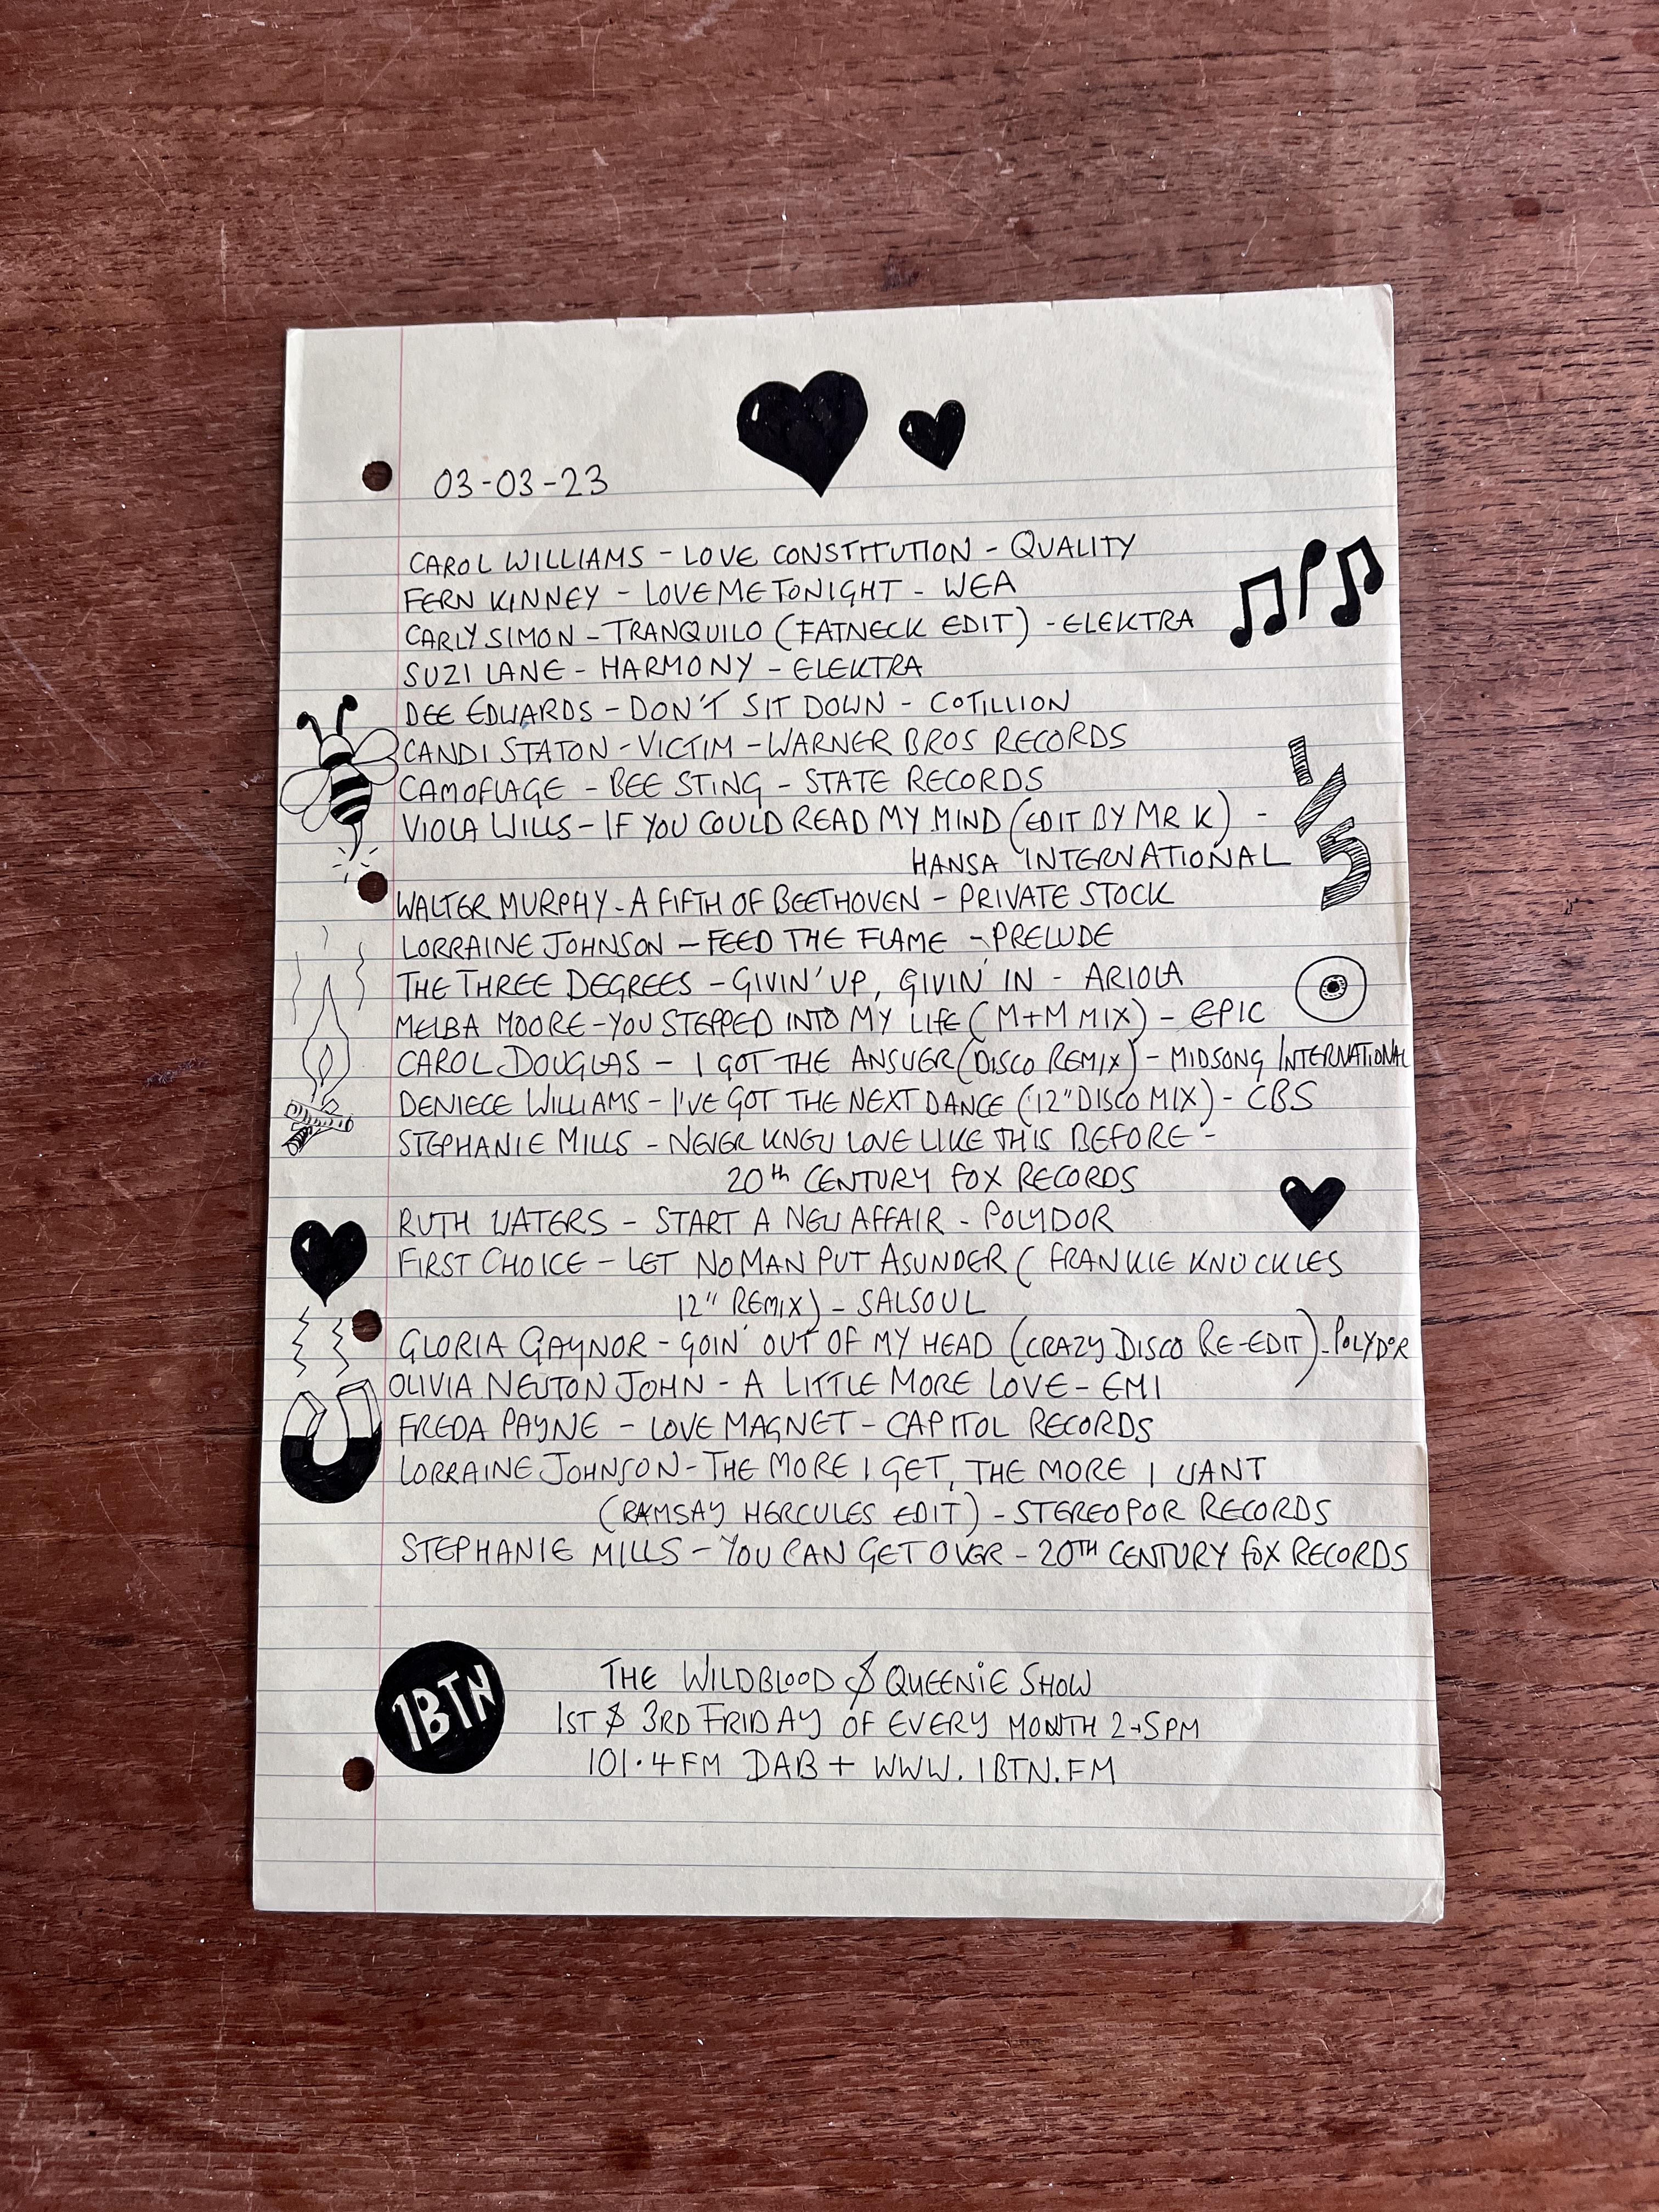 03-03-23
CAROL WILLIAMS - LOVE CONSTITUTION - QUALITY
FERN KINNEY - LOVE ME TONIGHT - WEA
CARLY SIMON - TRANQUILO (FATNECK EDIT) - ELEKTRA
SUZI LANE - HARMONY - ELEKTRA
DEE EDWARDS - DON'T SIT DOWN - COTILLION
CANDI STATON - VICTIM - WARNER BROS RECORDS
CAMOFLAGE - BEE STING - STATE RECORDS
1/5
VIOLA WILLS - IF YOU COULD READ MY MIND (EDIT BY MR K) -
HANSA INTERNATIONAL
WALTER MURPHY - A FIFTH OF BEETHOVEN - PRIVATE STOCK
LORRAINE JOHNSON - FEED THE FLAME - PRELUDE
THE THREE DEGREES - GIVIN' UP, GIVIN' IN - ARIOLA
MELBA MOORE - YOU STEPPED INTO MY LIFE (M+M MIX) - EPIC
CAROL DOUGLAS - I GOT THE ANSWER (DISCO REMIX) - MIDSONG INTERNATIONAL
DENIECE WILLIAMS - I'VE GOT THE NEXT DANCE (12" DISCO MIX) - CBS
STEPHANIE MILLS - NEVER KNEW LOVE LIKE THIS BEFORE -
20th CENTURY FOX RECORDS
RUTH WATERS - START A NEW AFFAIR - POLYDOR
FIRST CHOICE - LET NO MAN PUT ASUNDER (FRANKIE KNUCKLES
12" REMIX) - SALSOUL
GLORIA GAYNOR - GOIN' OUT OF MY HEAD (CRAZY DISCO RE-EDIT) - POLYDOR
OLIVIA NEWTON JOHN - A LITTLE MORE LOVE - EMI
FREDA PAYNE - LOVE MAGNET - CAPITOL RECORDS
LORRAINE JOHNSON - THE MORE I GET, THE MORE I WANT
(RAMSAY HERCULES EDIT) - STEREOPOR RECORDS
STEPHANIE MILLS - YOU CAN GET OVER - 20TH CENTURY FOX RECORDS
1BTN
THE WILDBLOOD & QUEENIE SHOW
1ST & 3RD FRIDAY OF EVERY MONTH 2-5PM
101.4FM DAB + WWW.1BTN.FM